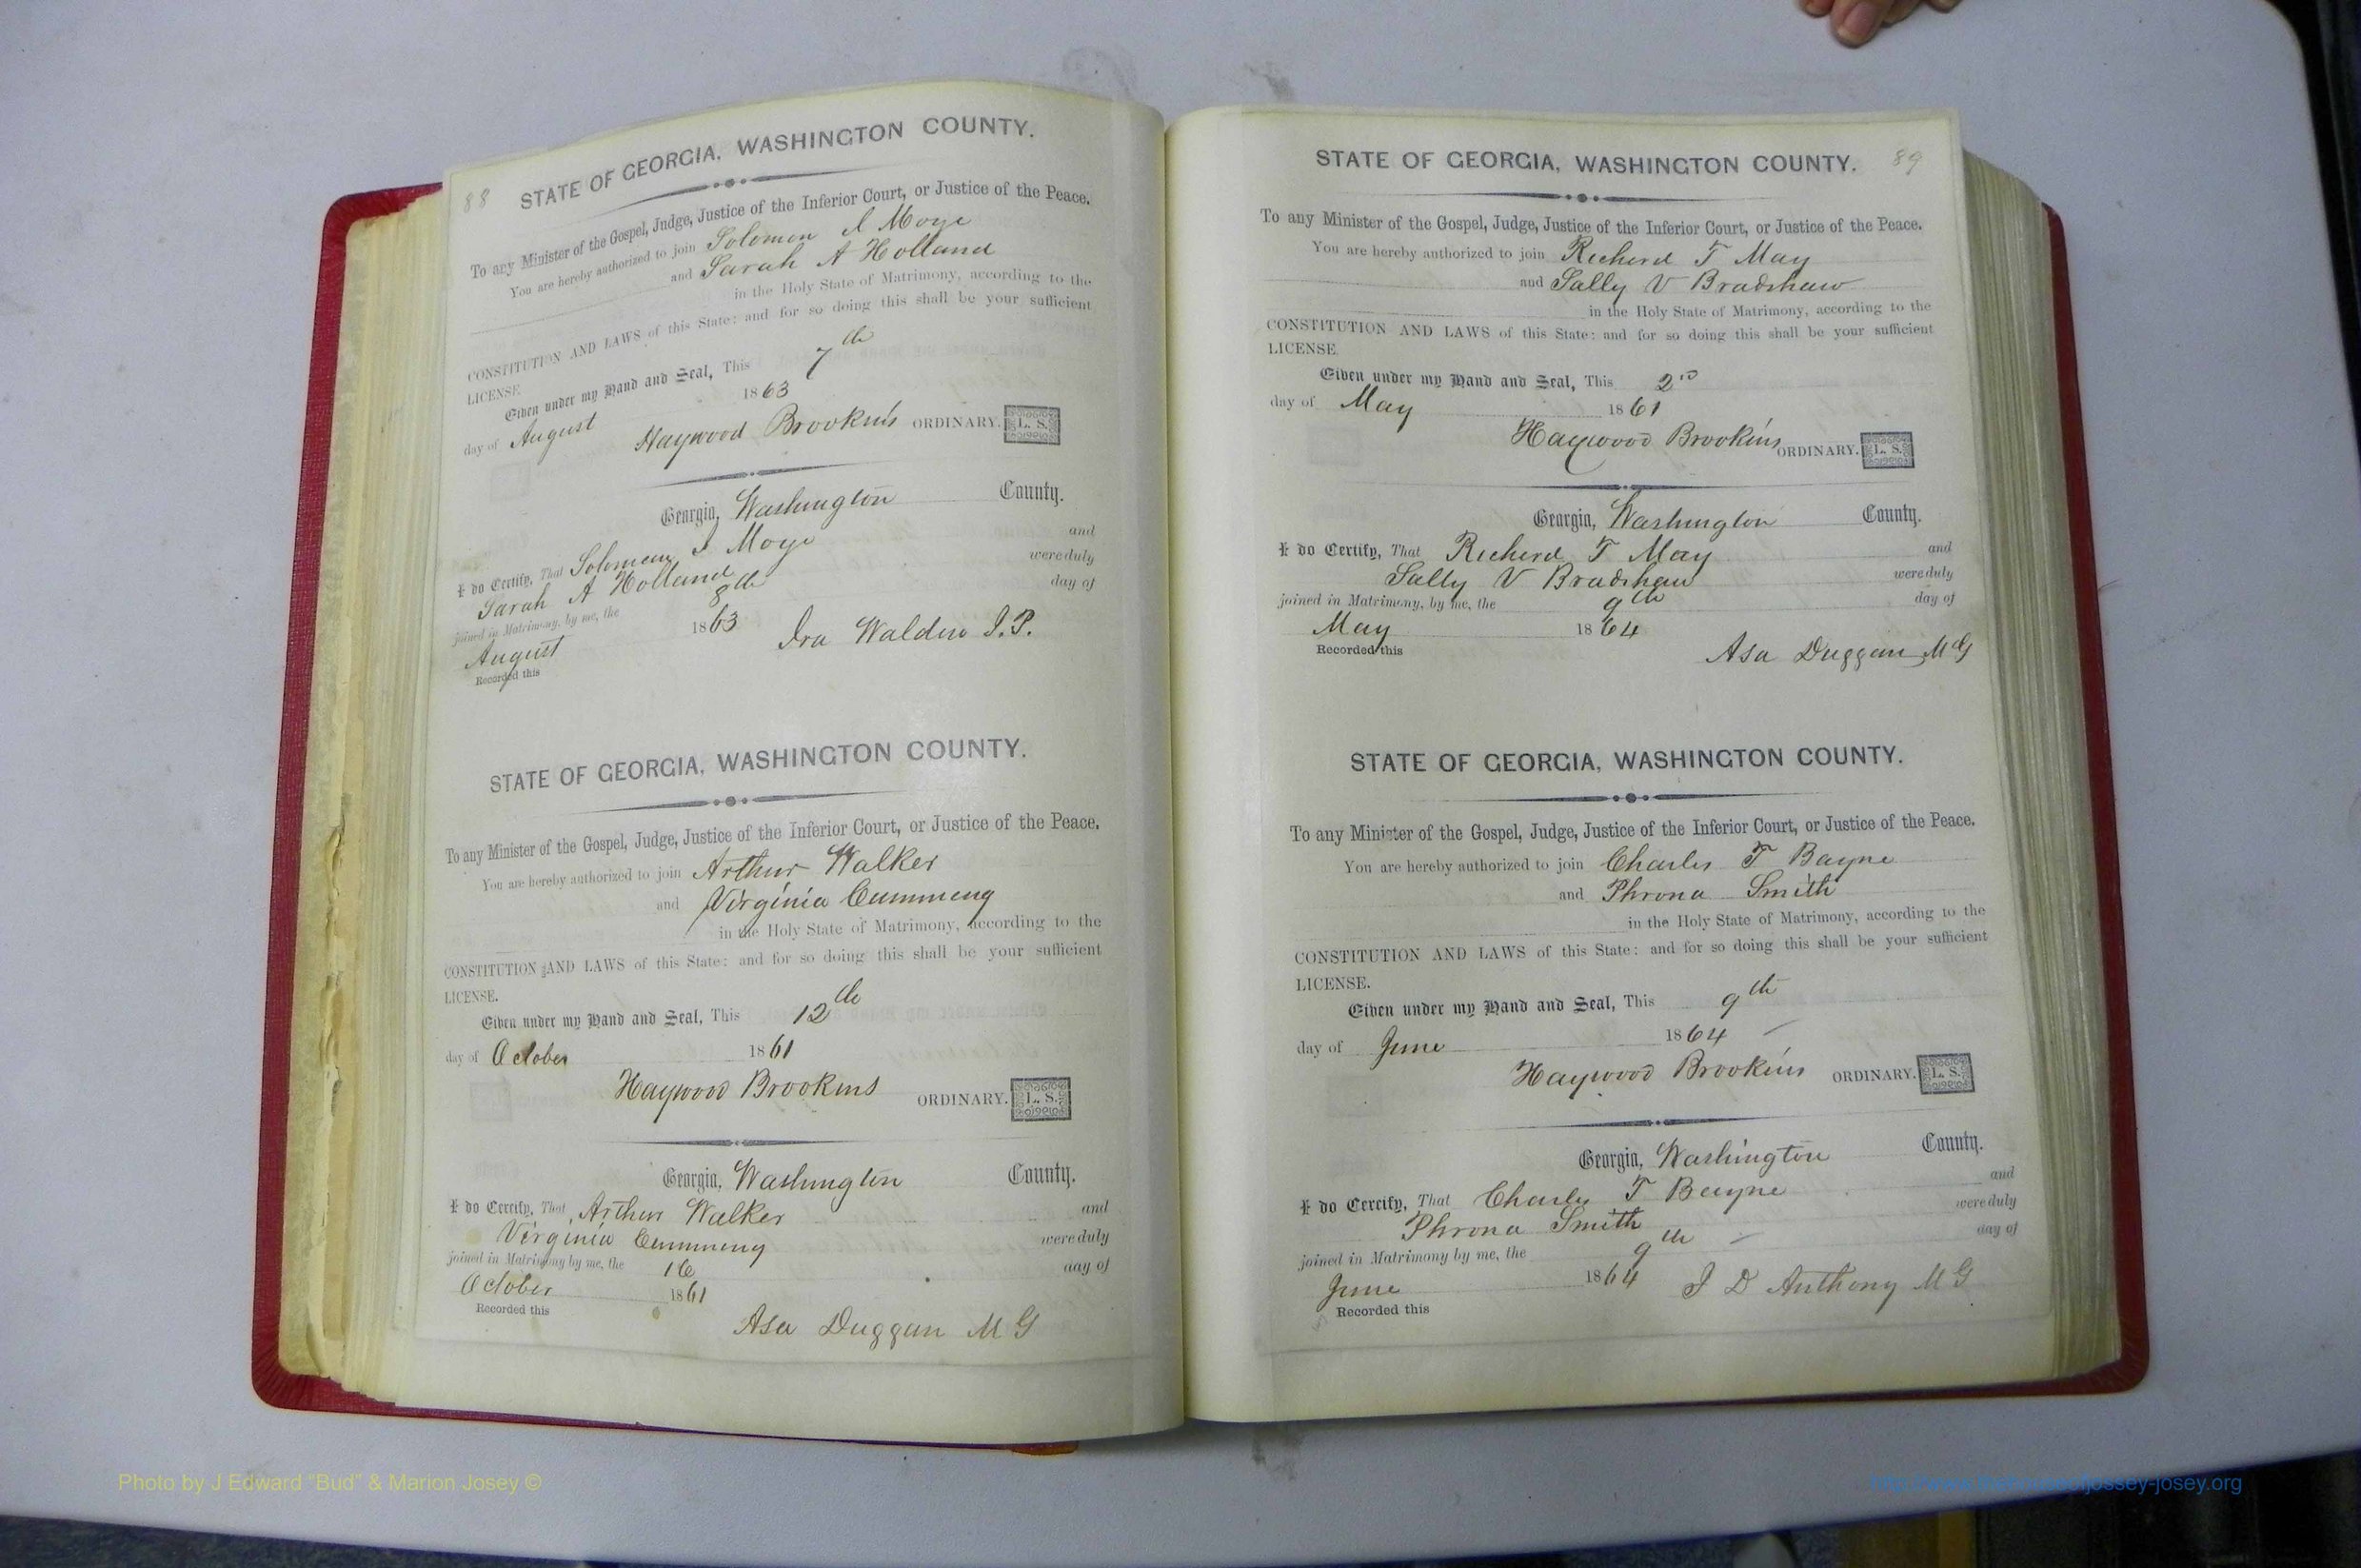 88
STATE OF GEORGIA, WASHINGTON COUNTY.
To any Minister of the Gospel, Judge, Justice of the Inferior Court, or Justice of the Peace.
You are hereby authorized to join Solomon I Moye
and Sarah A Holland
in the Holy State of Matrimony, according to the
CONSTITUTION AND LAWS of this State: and for so doing this shall be your sufficient
LICENSE.
Given under my Hand and Seal, This 7th
day of August 1863
Haywood Brookins ORDINARY. L. S.
Georgia, Washington County.
I do Certify, That Solomon I Moye and
Sarah A Holland were duly
joined in Matrimony, by me, the 8th day of
August 1863 Ira Walden J.P.
Recorded this
STATE OF GEORGIA, WASHINGTON COUNTY.
To any Minister of the Gospel, Judge, Justice of the Inferior Court, or Justice of the Peace.
You are hereby authorized to join Arthur Walker
and Virginia Cummeng
in the Holy State of Matrimony, according to the
CONSTITUTION AND LAWS of this State: and for so doing this shall be your sufficient
LICENSE.
Given under my Hand and Seal, This 12th
day of October 1861
Haywood Brookins ORDINARY. L. S.
Georgia, Washington County.
I do Certify, That Arthur Walker and
Virginia Cummeng were duly
joined in Matrimony by me, the 16 day of
October 1861
Recorded this
Asa Duggan M G
89
STATE OF GEORGIA, WASHINGTON COUNTY.
To any Minister of the Gospel, Judge, Justice of the Inferior Court, or Justice of the Peace.
You are hereby authorized to join Richerd T May
and Sally V Bradshaw
in the Holy State of Matrimony, according to the
CONSTITUTION AND LAWS of this State: and for so doing this shall be your sufficient
LICENSE.
Given under my Hand and Seal, This 2nd
day of May 1861
Haywood Brookins ORDINARY. L. S.
Georgia, Washington County.
I do Certify, That Richerd T May and
Sally V Bradshaw were duly
joined in Matrimony, by me, the 9th day of
May 1864
Recorded this
Asa Duggan M G
STATE OF GEORGIA, WASHINGTON COUNTY.
To any Minister of the Gospel, Judge, Justice of the Inferior Court, or Justice of the Peace.
You are hereby authorized to join Charles T Bayne
and Phrona Smith
in the Holy State of Matrimony, according to the
CONSTITUTION AND LAWS of this State: and for so doing this shall be your sufficient
LICENSE.
Given under my Hand and Seal, This 9th
day of June 1864
Haywood Brookins ORDINARY. L. S.
Georgia, Washington County.
I do Certify, That Charles T Bayne and
Phrona Smith were duly
joined in Matrimony by me, the 9th day of
June 1864 J D Anthony M G
Recorded this
Photo by J Edward "Bud" & Marion Josey ©